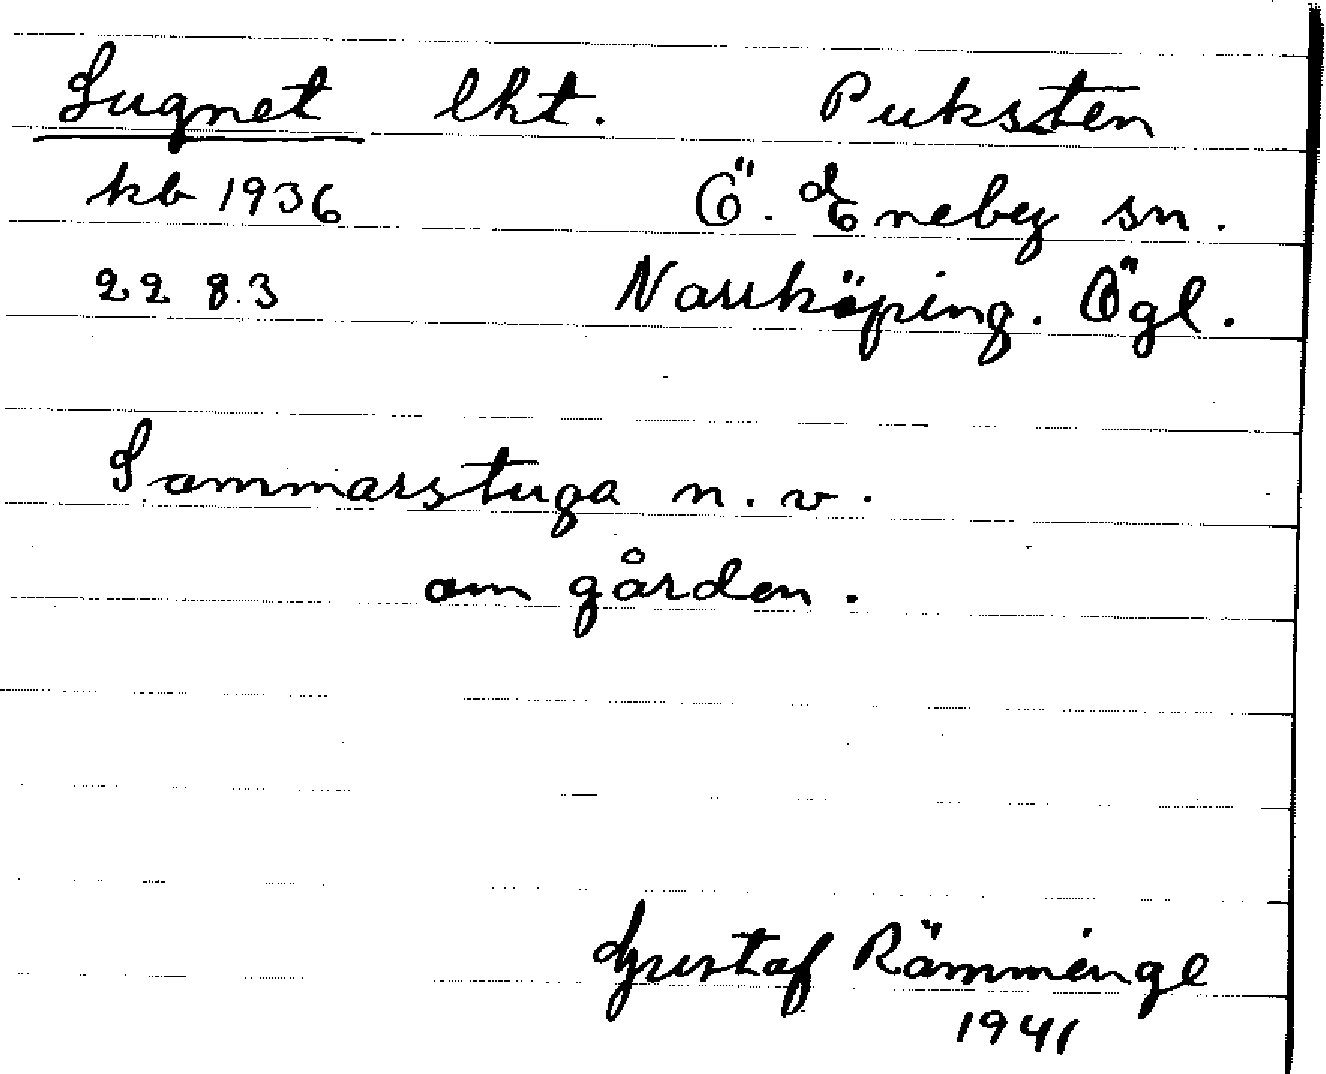 Lugnet lht. Puksten
kb 1936 Ö. Eneby sn.
22 8.3 Norrköping. Ögl.
Sommarstuga n. v.
om gården.
Gustaf Rämminge
1941